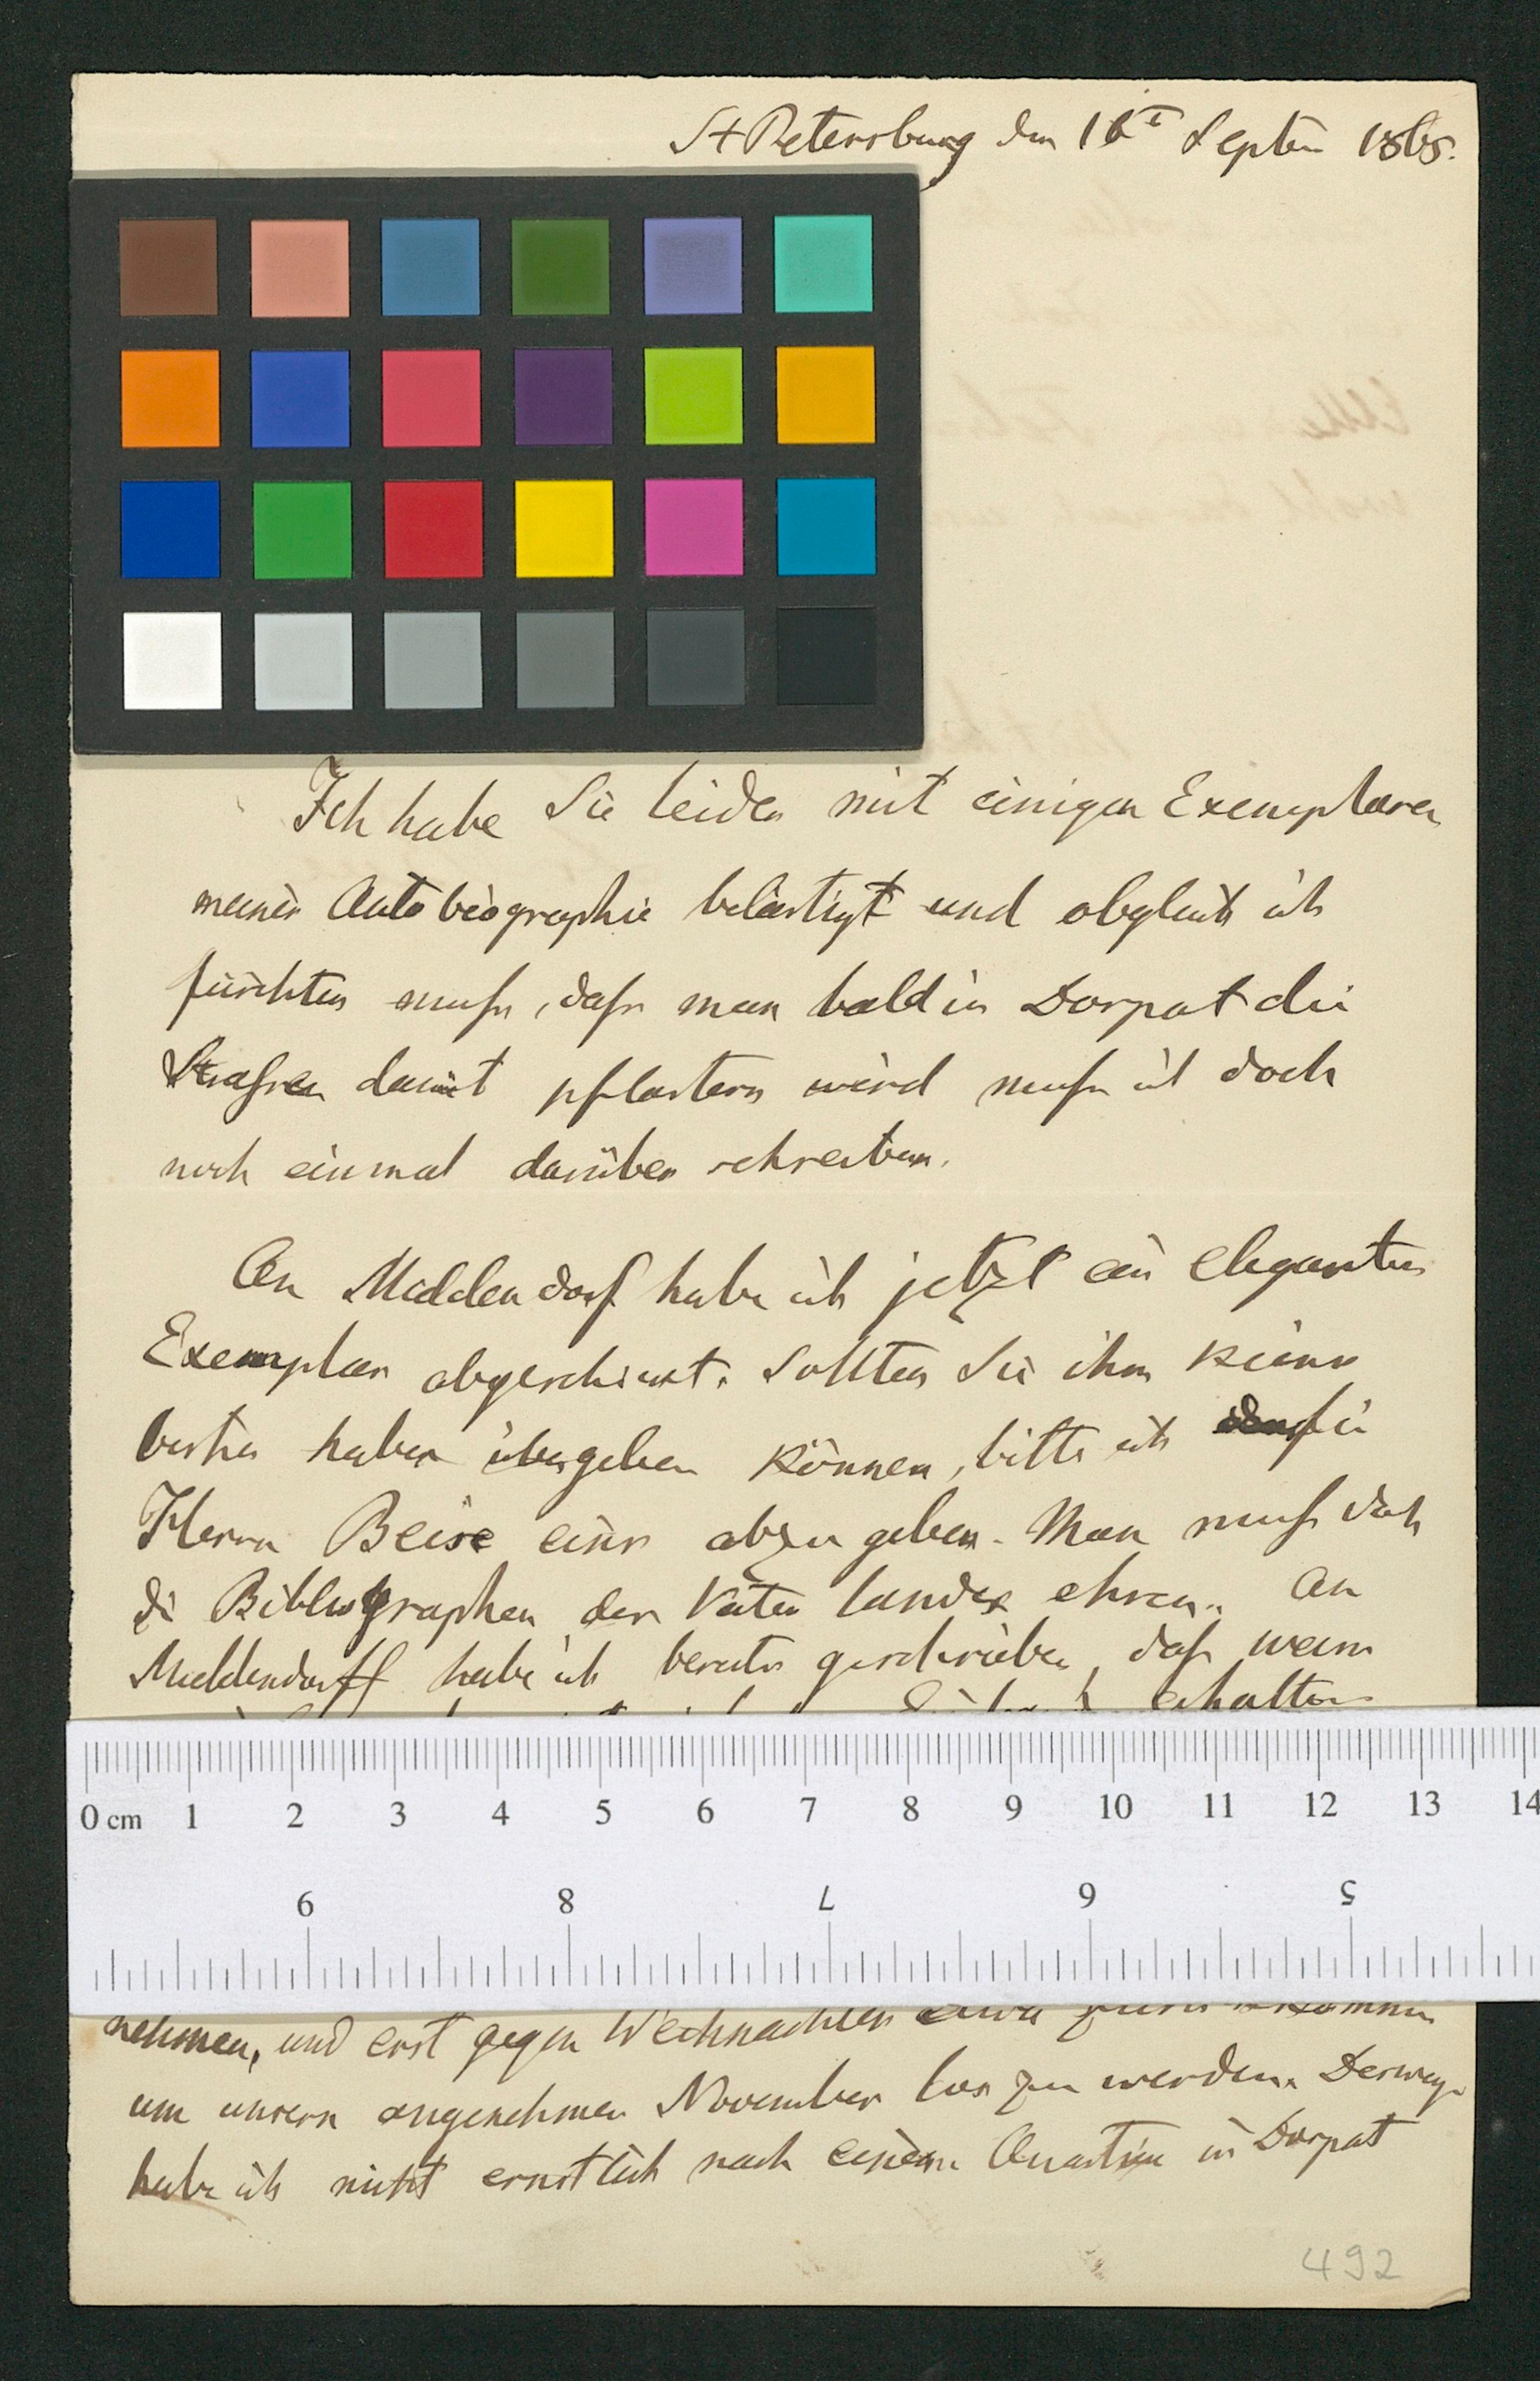 St Petersburg den 16t Septbr 1865.
Ich habe Sie leider mit einigen Exemplaren
meiner Autobiographie belästigt und obgleich ich
fürchten muss, dass man bald in Dorpat die
Strassen damit pflastern wird muss ich doch
noch einmal darüber schreiben.
An Middendorf habe ich jetzt ein elegantes
Exemplar abgeschickt. Sollten Sie ihm keins
haben übergeben können, bitte ich
Herrn Beise eins abzugeben. Man muss doch
die Bibliographen des Vaterlandes ehren. An
Middendorff habe ich bereits geschrieben, dass wenn
erhalten
0 cm 1 2 3 4 5 6 7 8 9 10 11 12 13 14
9 8 7 6 5
nehmen, und erst gegen Weihnachten etwa
um unsern angenehmen November los zu werden. Deswegen
habe ich nicht ernstlich nach einem Quartier in Dorpat
492